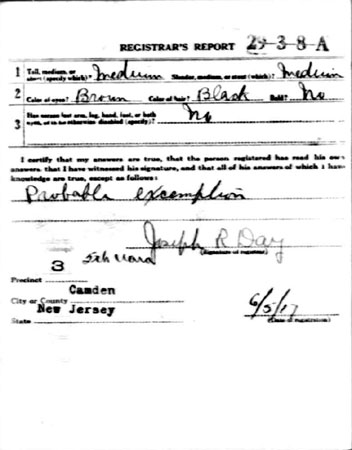 REGISTRAR'S REPORT 29-3-8-A
1 Tall, medium, or short (specify which)? Medium Slender, medium, or stout (which)? Medium
2 Color of eyes? Brown Color of hair? Black Bald? No
3 Has person lost arm, leg, hand, foot, or both eyes, or is he otherwise disabled (specify)? No
I certify that my answers are true, that the person registered has read his own
answers, that I have witnessed his signature, and that all of his answers of which I have
knowledge are true, except as follows:
Probable excemption
Joseph R Day
(Signature of registrar)
3 5th Ward
Precinct
Camden
City or County
New Jersey
State
6/5/17
(Date of registration)